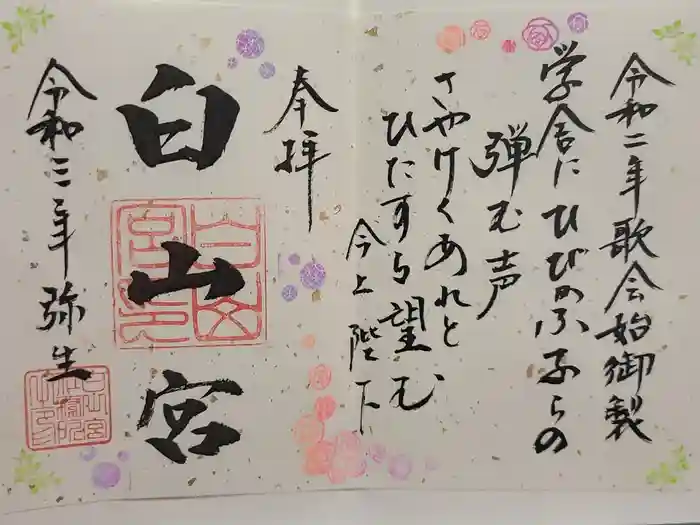 令和二年歌会始御製
学舎にひびかふ子らの
弾む声
さやけくあれと
ひたすら望む
今上陛下
奉拝
白山宮
白山宮印
令和三年弥生